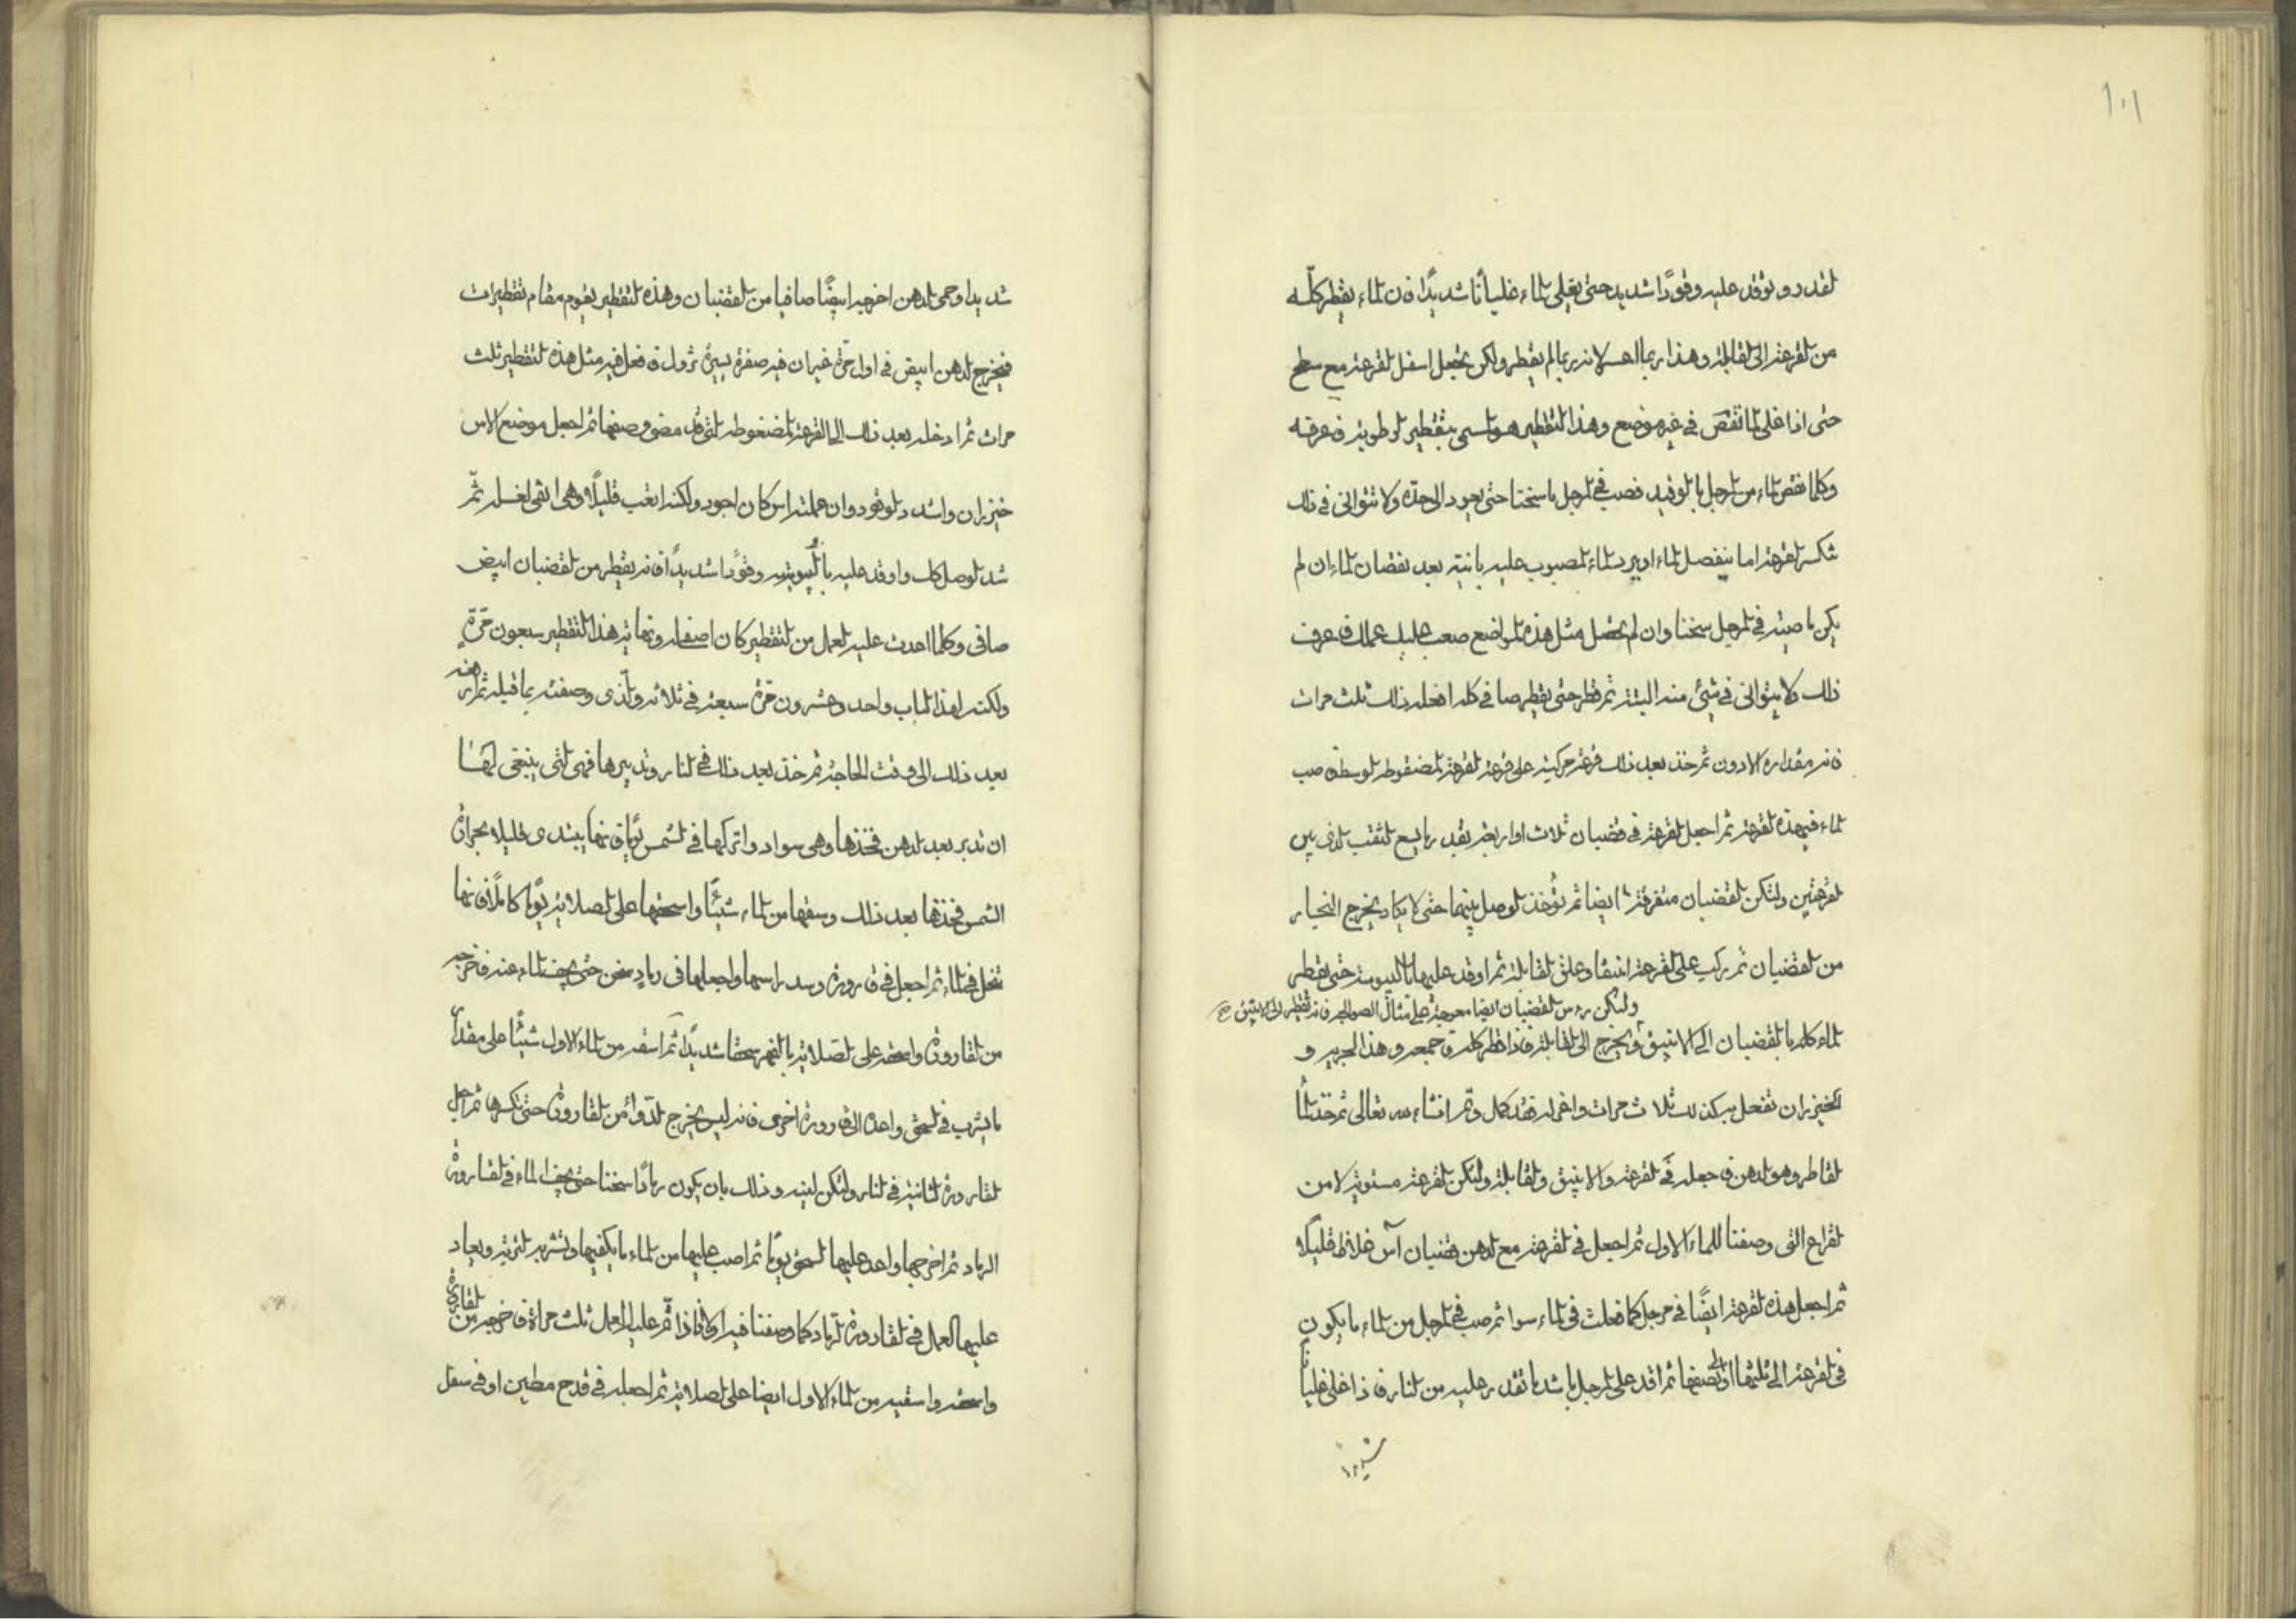 ١٠١
القدر وتوقد عليه وقودًا شديد حتى يغلى الماء غليانًا شديدًا فان الماء يقطر كلّه
من القرعة الى القابلة وهذا ربما لانه ربما لم يقطر ولكن يجعل اسفل القرعة مع سطح
حتى اذا غلى لما نقص في غير موضع وهذا التقطير هو المسمى بتقطير الرطوبة فاعرفه
وكلما نقص الماء من المرجل بالوقيد فصب في المرجل ماسخنا حتى يعود الى حدّه ولا تتوانى في ذلك
تنكسر القرعة اما ينفصل الماء او يبرد الماء المصبوب عليه بعد نقصان الماء ان لم
يكن ما صبته في المرجل سخنا وان لم مثل هذه المواضع صعب عليك عملك فاعرف
ذلك ولا يتوانى في شيئ منه البتة ثم قطر حتى يقطر صافي كله افعل ذلك ثلث مرات
فانه مقداره الادون ثم خذ بعد ذلك قرعة مركبة على قرعة القرعة المضغوطة الوسط فصب
الماء في هذه القرعة ثم اجعل القرعة في قضبان ثلاث او اربعة بقدر ما يسع الثقب الذى بين
القرعتين ولتكن القضبان متفرقة ايضا ثم تؤخذ الوصل بينهما حتى لا يكاد يخرج البخار
من القضبان ثم ركب على القرعة انبيقا وعلق القابلة ثم اوقد عليها باليبوسة حتى يقطر
ولتكن رءس القضبان ايضا معوجة على مثال الصوالجة فانه يقطر الى الانبيق صح
الماء كله بالقضبان الى الانبيق ويخرج الى القابلة فاذا قطر كله فاجمعه وهذا الجريد و
الخيزران تفعل به كذلك ثلاث مرات واغمراه فقد كمل وتم انشاء الله تعالى ثم خذ الماء
القاطر وهو الدهن فاجعله في القرعة والانبيق والقابلة ولتكن القرعة مستوية لا من
القراع التى وصفنا للماء الاول ثم اجعل في القرعة مع الدهن قضبان آس غلاظ قليلا
ثم اجعل هذه القرعة ايضًا في مرجل كما فعلت في الماء سوا ثم صب في المرجل من الماء ما يكون
في القرعة الى ثلثها او الى نصفها ثم اقد على المرجل باشد ما تقدر عليه من النار فاذا غلى غليانًا
شديدا
شديدا وحمى الدهن اخرجه ابيضًا صافيا من القضبان وهذه التقطير يقوم مقام تقطيرات
فيخرج الدهن ابيض في اول مرّة غير ان فيه صفرة يسيرة تزول فافعل فيه مثل هذه التقطير ثلث
مرات ثم ادخله بعد ذلك الى القرعة المضغوطة التى قد مضى وصفها ثم اجعل موضع الاس
خيزران واشدد الوقود وان عملته اس كان اجود ولكنه اتعب قليلًا وهى ابقى لغسله ثمّ
شد الوصل كله واوقد عليه باليبوسة وقودًا شديدًا فانه يقطر من القضبان ابيض
صافى وكلما احدث عليه العمل من التقطير كان اصفا له ونهاية هذا التقطير سبعون مرّةٍ
ولكنه لهذا الباب واحد وعشرون مرّة سبعة في ثلاثة والّذى وصفته بما قبله ثم ارفعه
بعد ذلك الى وقت الحاجة ثم خذ بعد ذلك في النار وتدبيرها فهى التى ينبغى لها
ان تدبر بعد الدهن فخذها وهى سواد واتركها في الشمس يومًا فانها يبتدى قليلا بحرارة
الشمس فخذها بعد ذلك وسقها من الماء شيئًا واسحقها على الصلاية يومًا كاملًا فانها
تنحل في الماء ثم اجعل في قارورة وسد راسها واجعلها في رمادٍ سخن حتى يجف الماء عنه فاخرجه
من القارورة واسحقه على الصلاية بالفهر سحقا شديدًا ثم اسقه من الماء الاول شيئًا على مقدار
ما يشرب في السحق واعده الى قارورة اخرى فانه ليس يخرج الدّواء من القارورة حتى تكسرها ثم اجعل
القارورة الثانية في النار ولتكن لينه وذلك بان يكون رمادًا سخنا حتى يجف الماء في القارورة
الرماد ثم اخرجها واعد عليها السحق يومًا ثم اصب عليها من الماء ما يكفيها وتشربه التربة ويعاد
عليها العمل في القارورة الرّماد كما وصفنا فيه اولا فاذا تمّ عليه العمل ثلث مراة فاخرجه من القارورة
واسحقه واسقيه من الماء الاول ايضا على الصلاية ثم اجعله في قدح مطين او في سفل